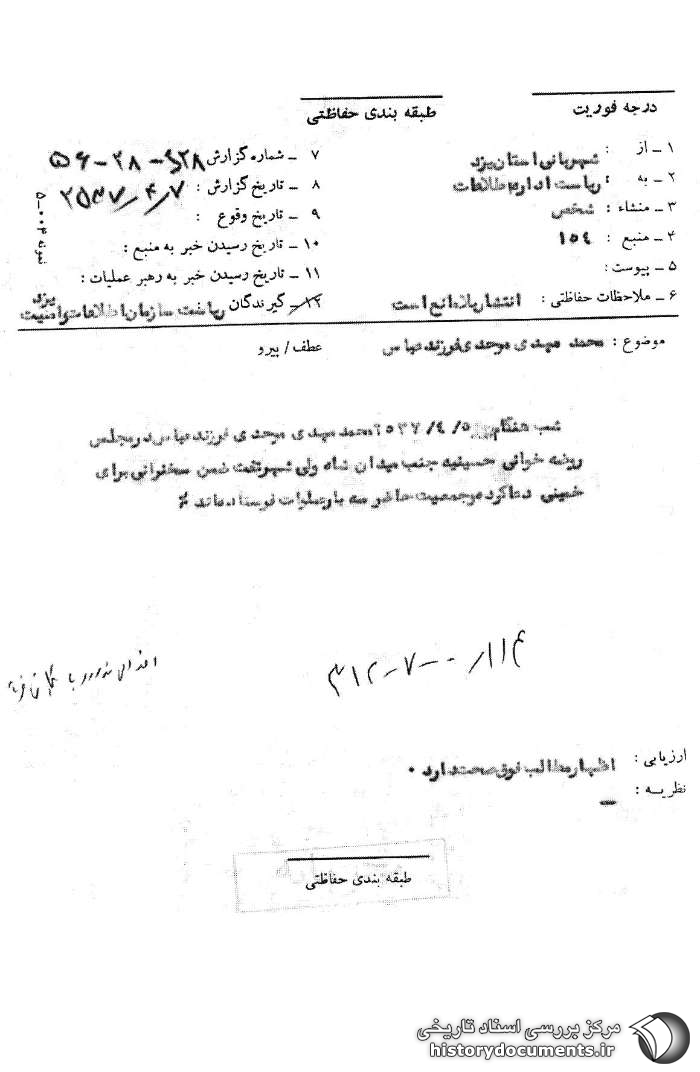 درجه فوریت
طبقه بندی حفاظتی
۱ ـ از : شهربانی استان یزد
۲ ـ به : ریاست اداره اطلاعات
۳ ـ منشاء : شخص
۴ ـ منبع : ۱۵٤
۵ ـ پیوست :
۶ ـ ملاحظات حفاظتی : انتشار بلامانع است
۷ ـ شماره گزارش
۸ ـ تاریخ گزارش : ۲۵۳۷/۴/۷
۹ ـ تاریخ وقوع :
۱۰ ـ تاریخ رسیدن خبر به منبع :
۱۱ ـ تاریخ رسیدن خبر به رهبر عملیات :
۱۲ ـ گیرندگان ریاست سازمان اطلاعات و امنیت یزد
نمونه ۰۰۴ــ۵
موضوع : محمد مهدی موحدی فرزند عباس
عطف / پیرو
شب هنگام ۲۵۳۷/٤/۵ محمد مهدی موحدی فرزند عباس در مجلس
روضه خوانی حسینیه جنب میدان شاه ولی شهر تفت ضمن سخنرانی برای
خمینی دعا کرده و جمعیت حاضر سه بار صلوات فرستاده‌اند
ارزیابی : اظهار مطالب فوق صحت دارد ۰
نظریه : ــ
طبقه بندی حفاظتی
مرکز بررسی اسناد تاریخی
historydocuments.ir